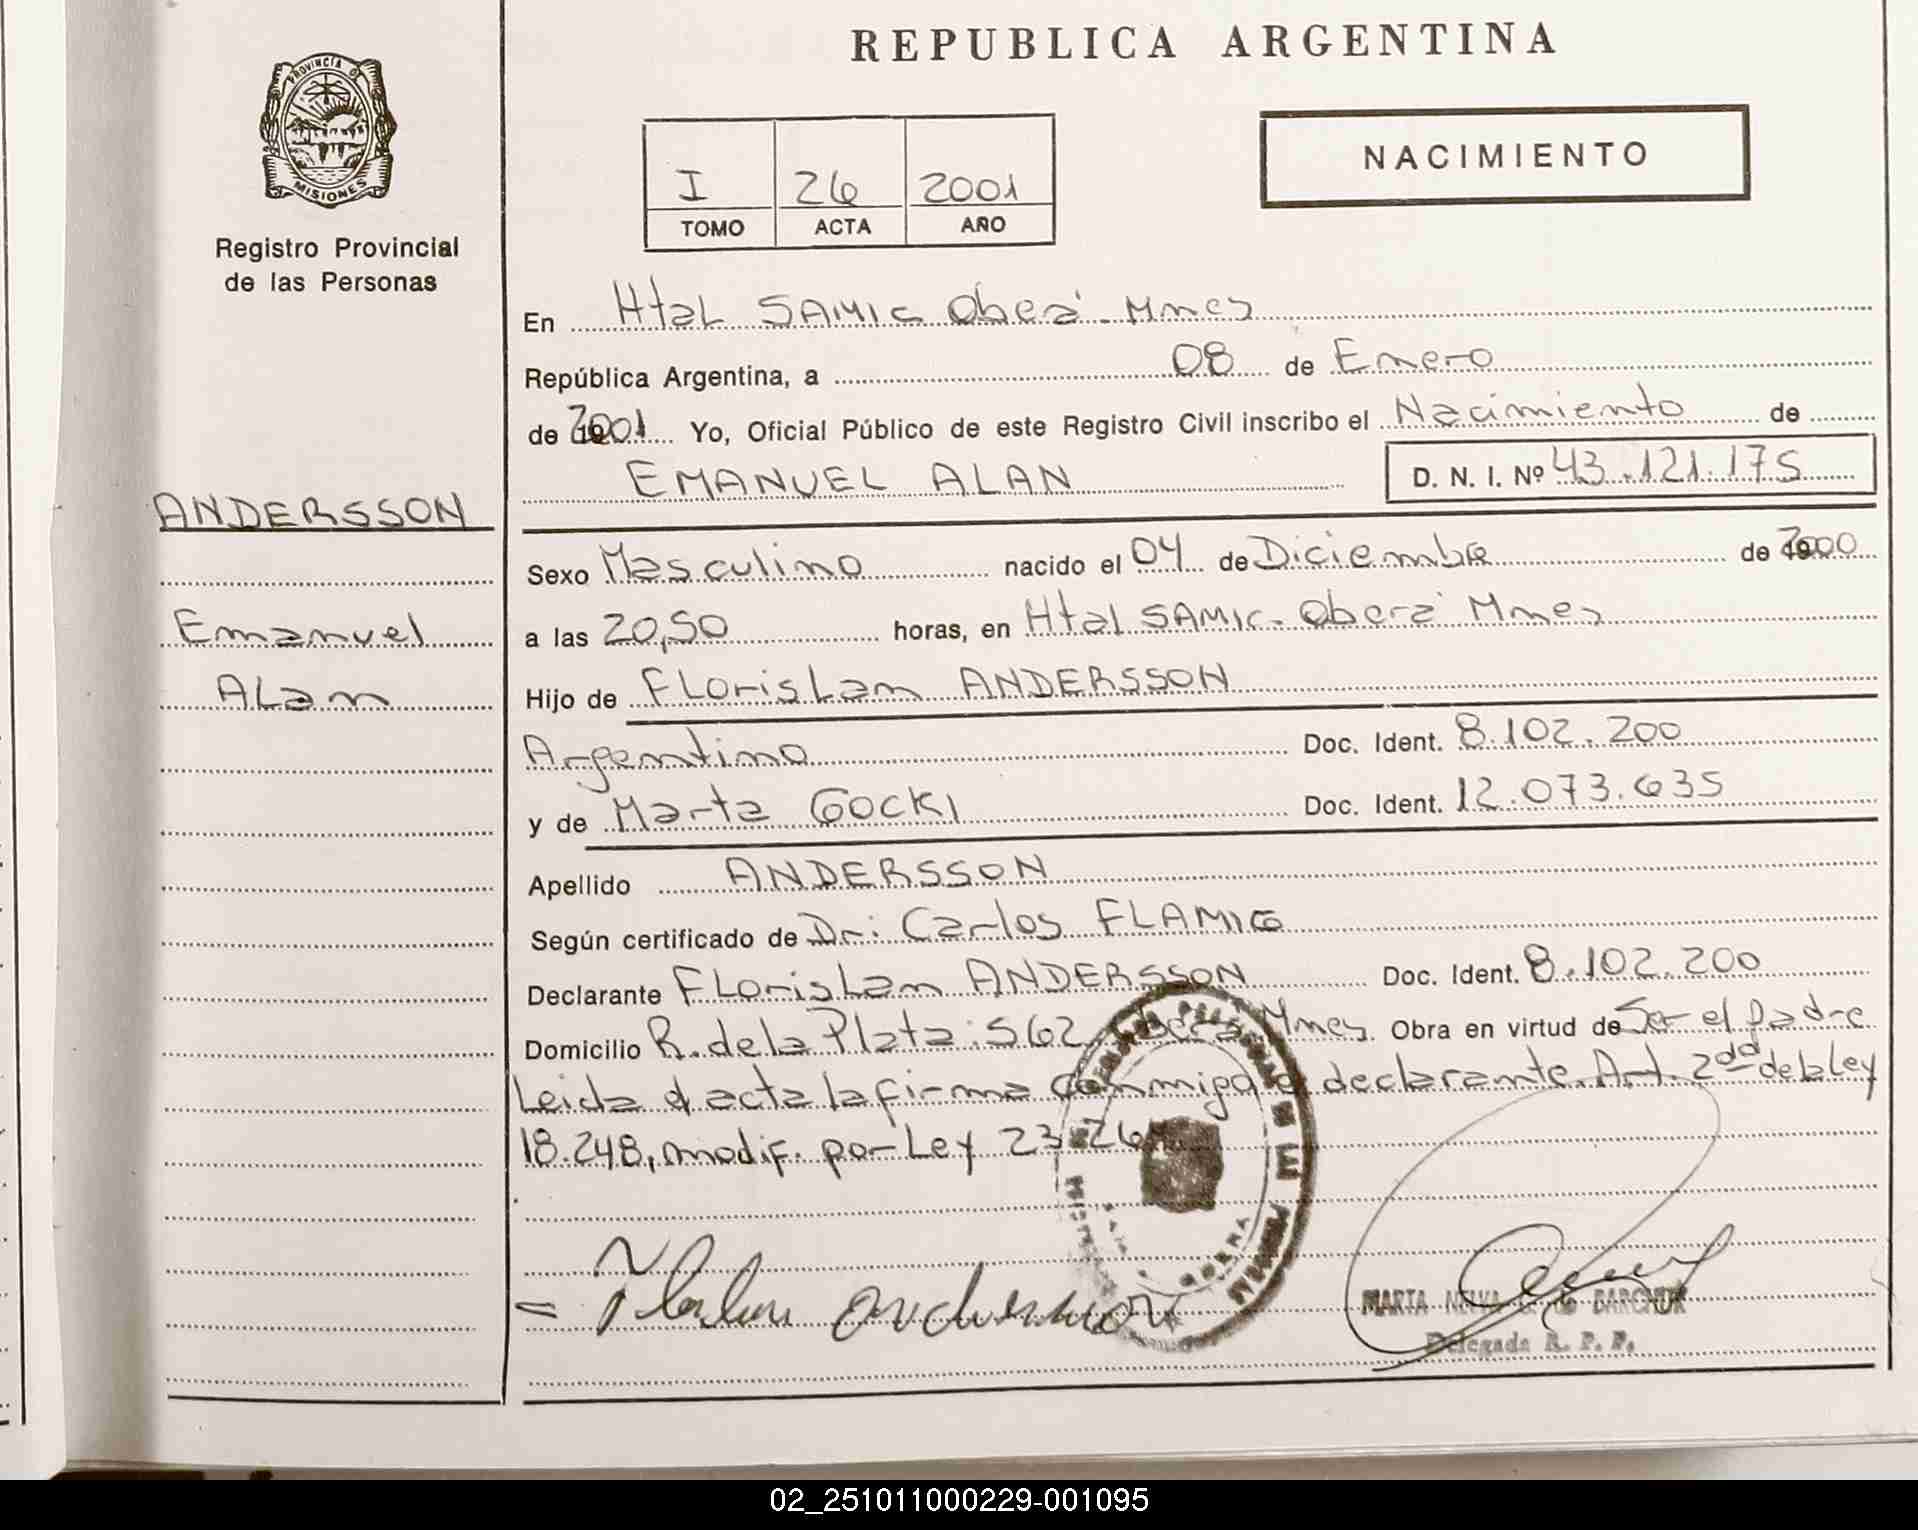 REPUBLICA ARGENTINA
PROVINCIA DE
MISIONES
Registro Provincial
de las Personas
I 26 2001
TOMO ACTA AÑO
NACIMIENTO
En Htal SAMIC Oberá - Mnes
República Argentina, a 08 de Enero
de 2001 Yo, Oficial Público de este Registro Civil inscribo el Nacimiento de
EMANUEL ALAN D. N. I. Nº 43.121.175
ANDERSSON
Emanuel
ALan
Sexo Masculino nacido el 04 de Diciembre de 2000
a las 20,50 horas, en Htal SAMIC - Oberá Mnes
Hijo de FLorisLan ANDERSSON
Argentino Doc. Ident. 8.102.200
y de Marta GOCKI Doc. Ident. 12.073.635
Apellido ANDERSSON
Según certificado de Dr: Carlos
Declarante FLorisLan ANDERSSON Doc. Ident. 8.102.200
Domicilio R. de la Plata: 562 Oberá Mnes. Obra en virtud de Ser el padre
Leida el acta la firma conmigo el declarante. Art. de la Ley
18.248, modif. por Ley
MARTA DE
Delegada R. P. P.
02_251011000229-001095